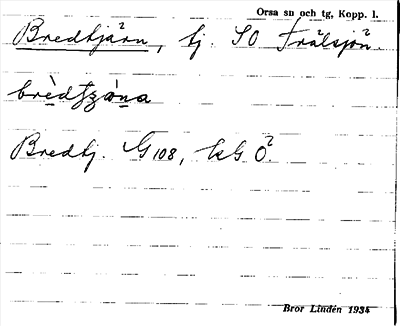 Orsa sn och tg, Kopp. l.
Bredtjärn, tj. SO Trälsjön.
Bredtj. G108, kG Ö.
Bror Lindén 1934